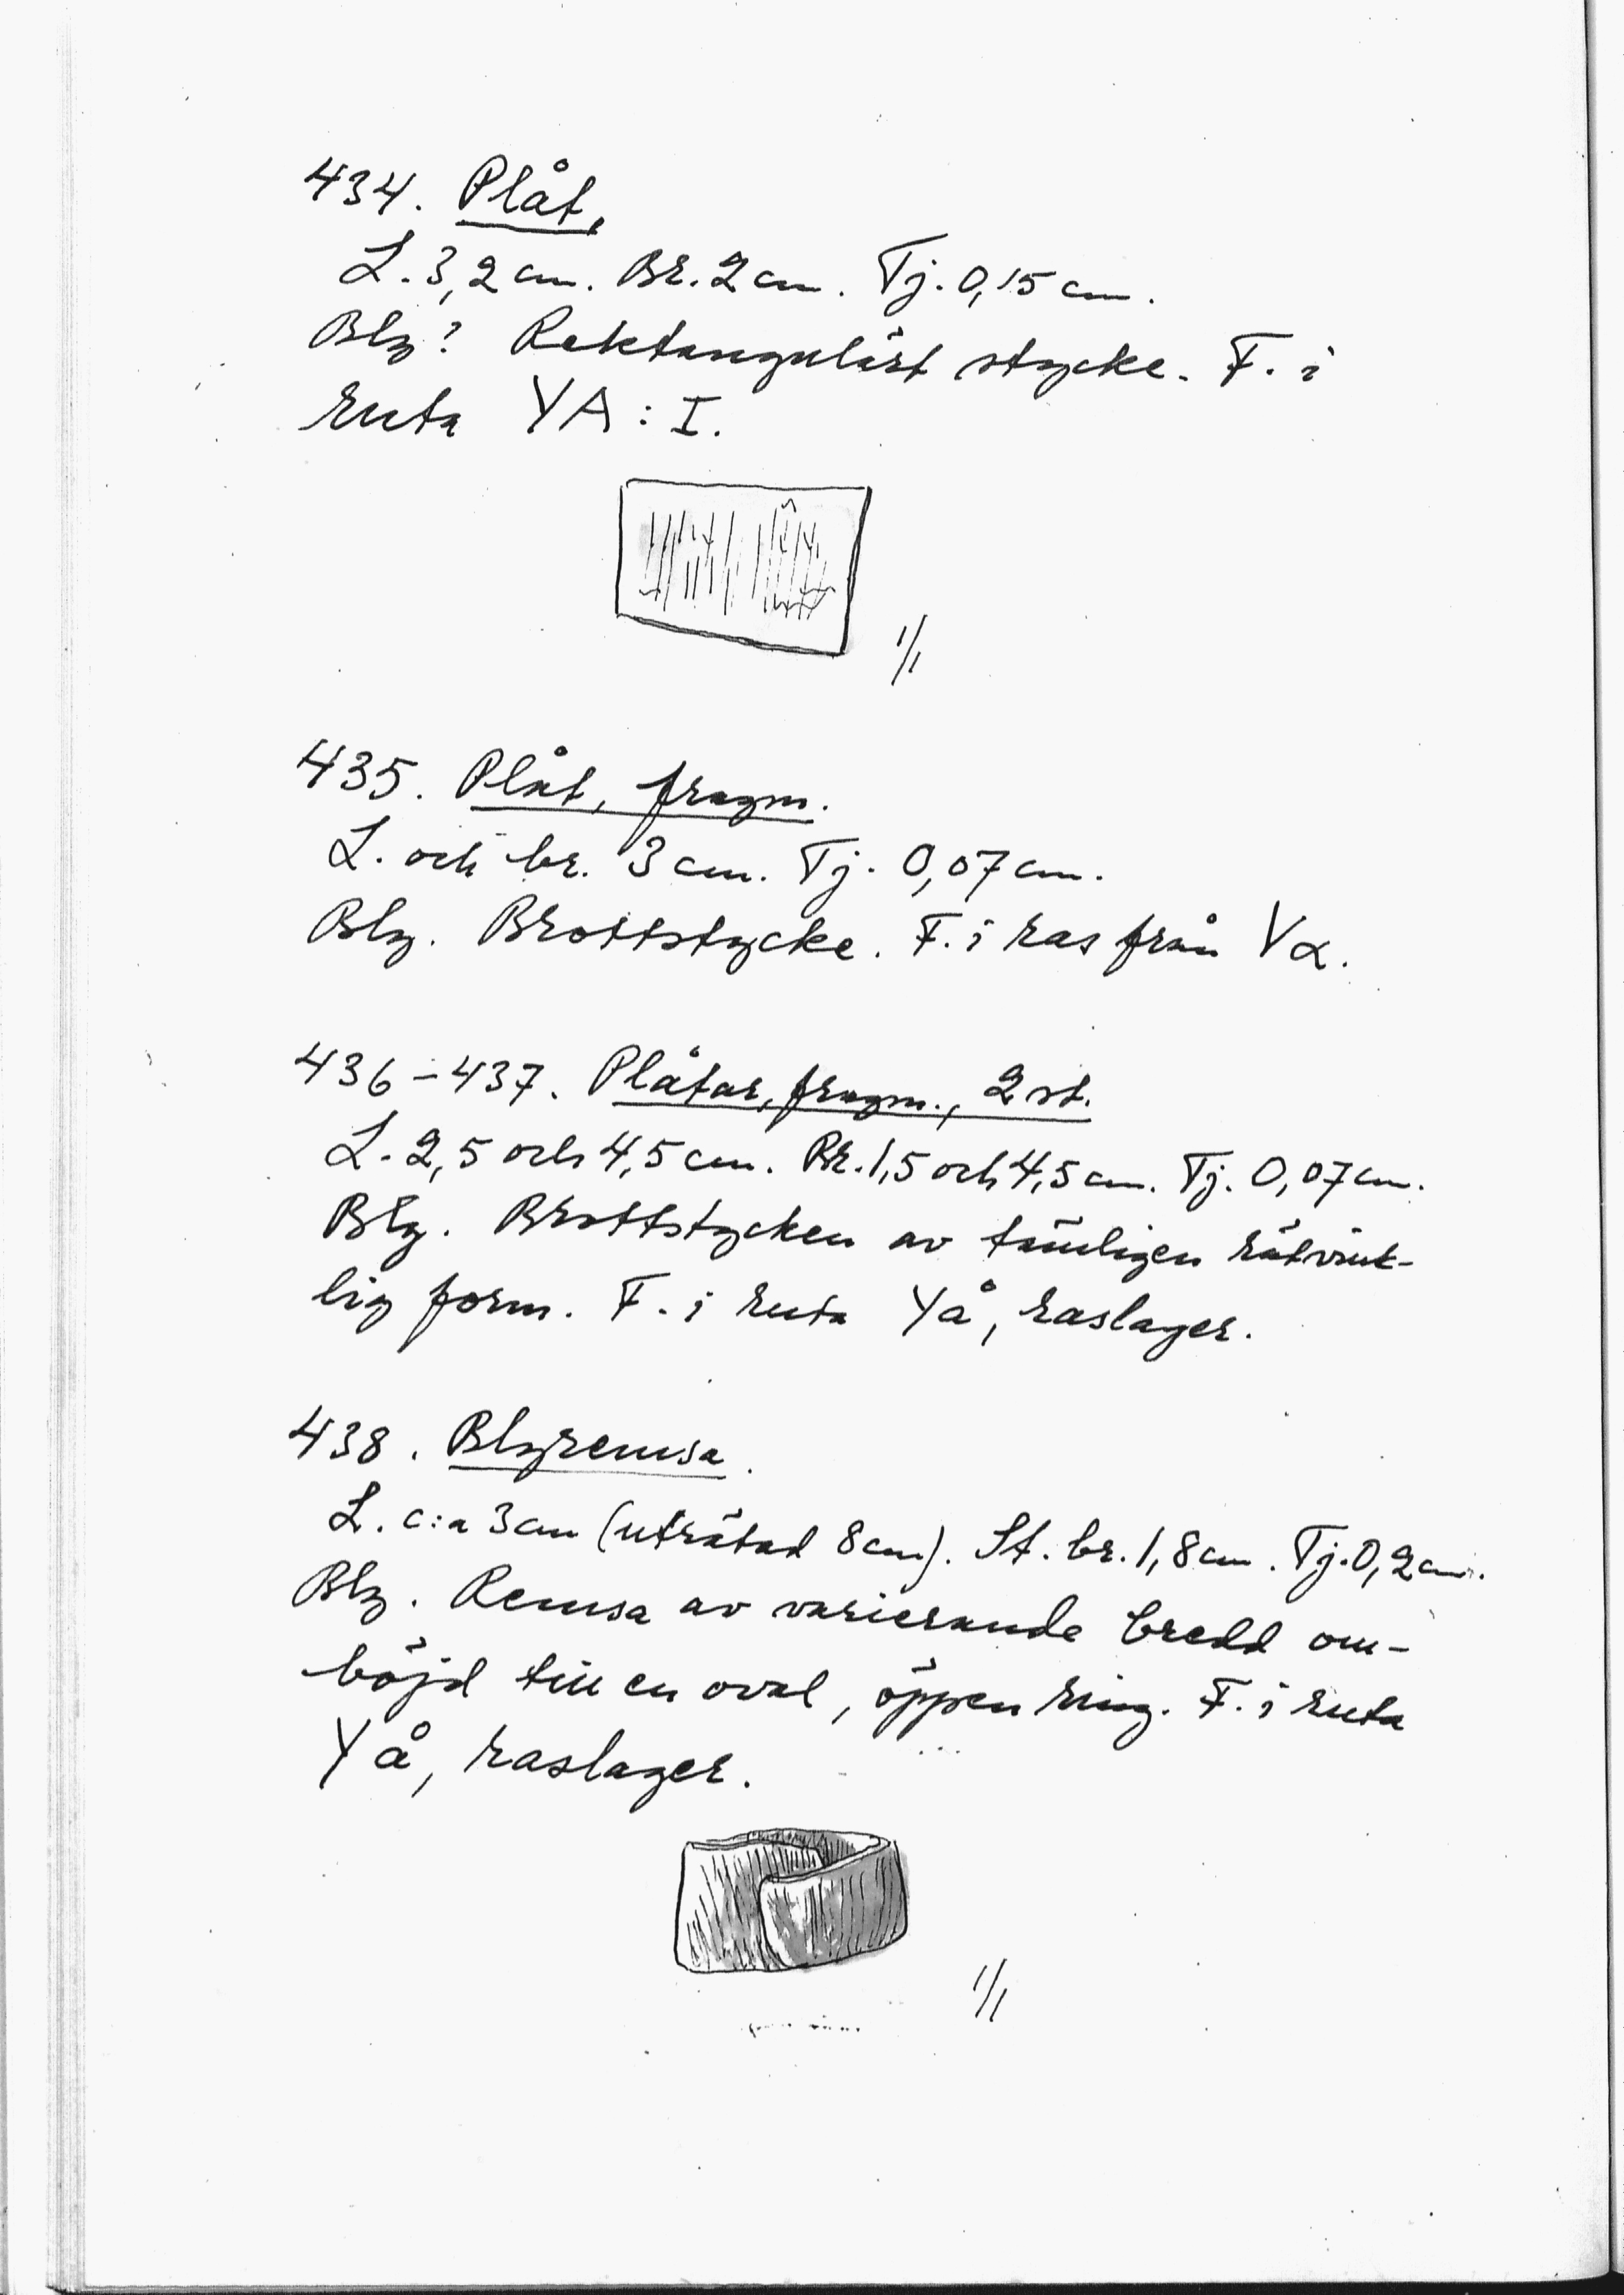 434. Plåt.
L. 3,2 cm. Br. 2 cm. Tj. 0,15 cm.
Bly? Rektangulärt stycke. F. i
ruta YA: I.
1/1
435. Plåt, fragm.
L. och br. 3 cm. Tj. 0,07 cm.
Bly. Brottstycke. F. i ras från Vα.
436-437. Plåtar, fragm., 2 st.
L. 2,5 och 4,5 cm. Br. 1,5 och 4,5 cm. Tj. 0,07 cm.
Bly. Brottstycken av tämligen rätvink-
lig form. F. i ruta YÅ, raslager.
438. Blyremsa.
L. c:a 3 cm (uträtad 8 cm). St. br. 1,8 cm. Tj. 0,2 cm.
Bly. Remsa av varierande bredd om-
böjd till en oval, öppen ring. F. i ruta
YÅ, raslager.
1/1